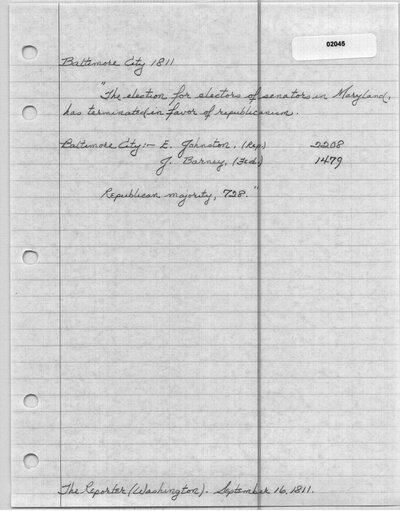 02045
Baltimore City 1811
"The election for electors of senators in Maryland,
has terminated in favor of republicanism.
Baltimore City:- E. Johnston, (Rep.) 2208
J. Barney, (Fed.) 1479
Republican majority, 728."
The Reporter (Washington). September 16, 1811.